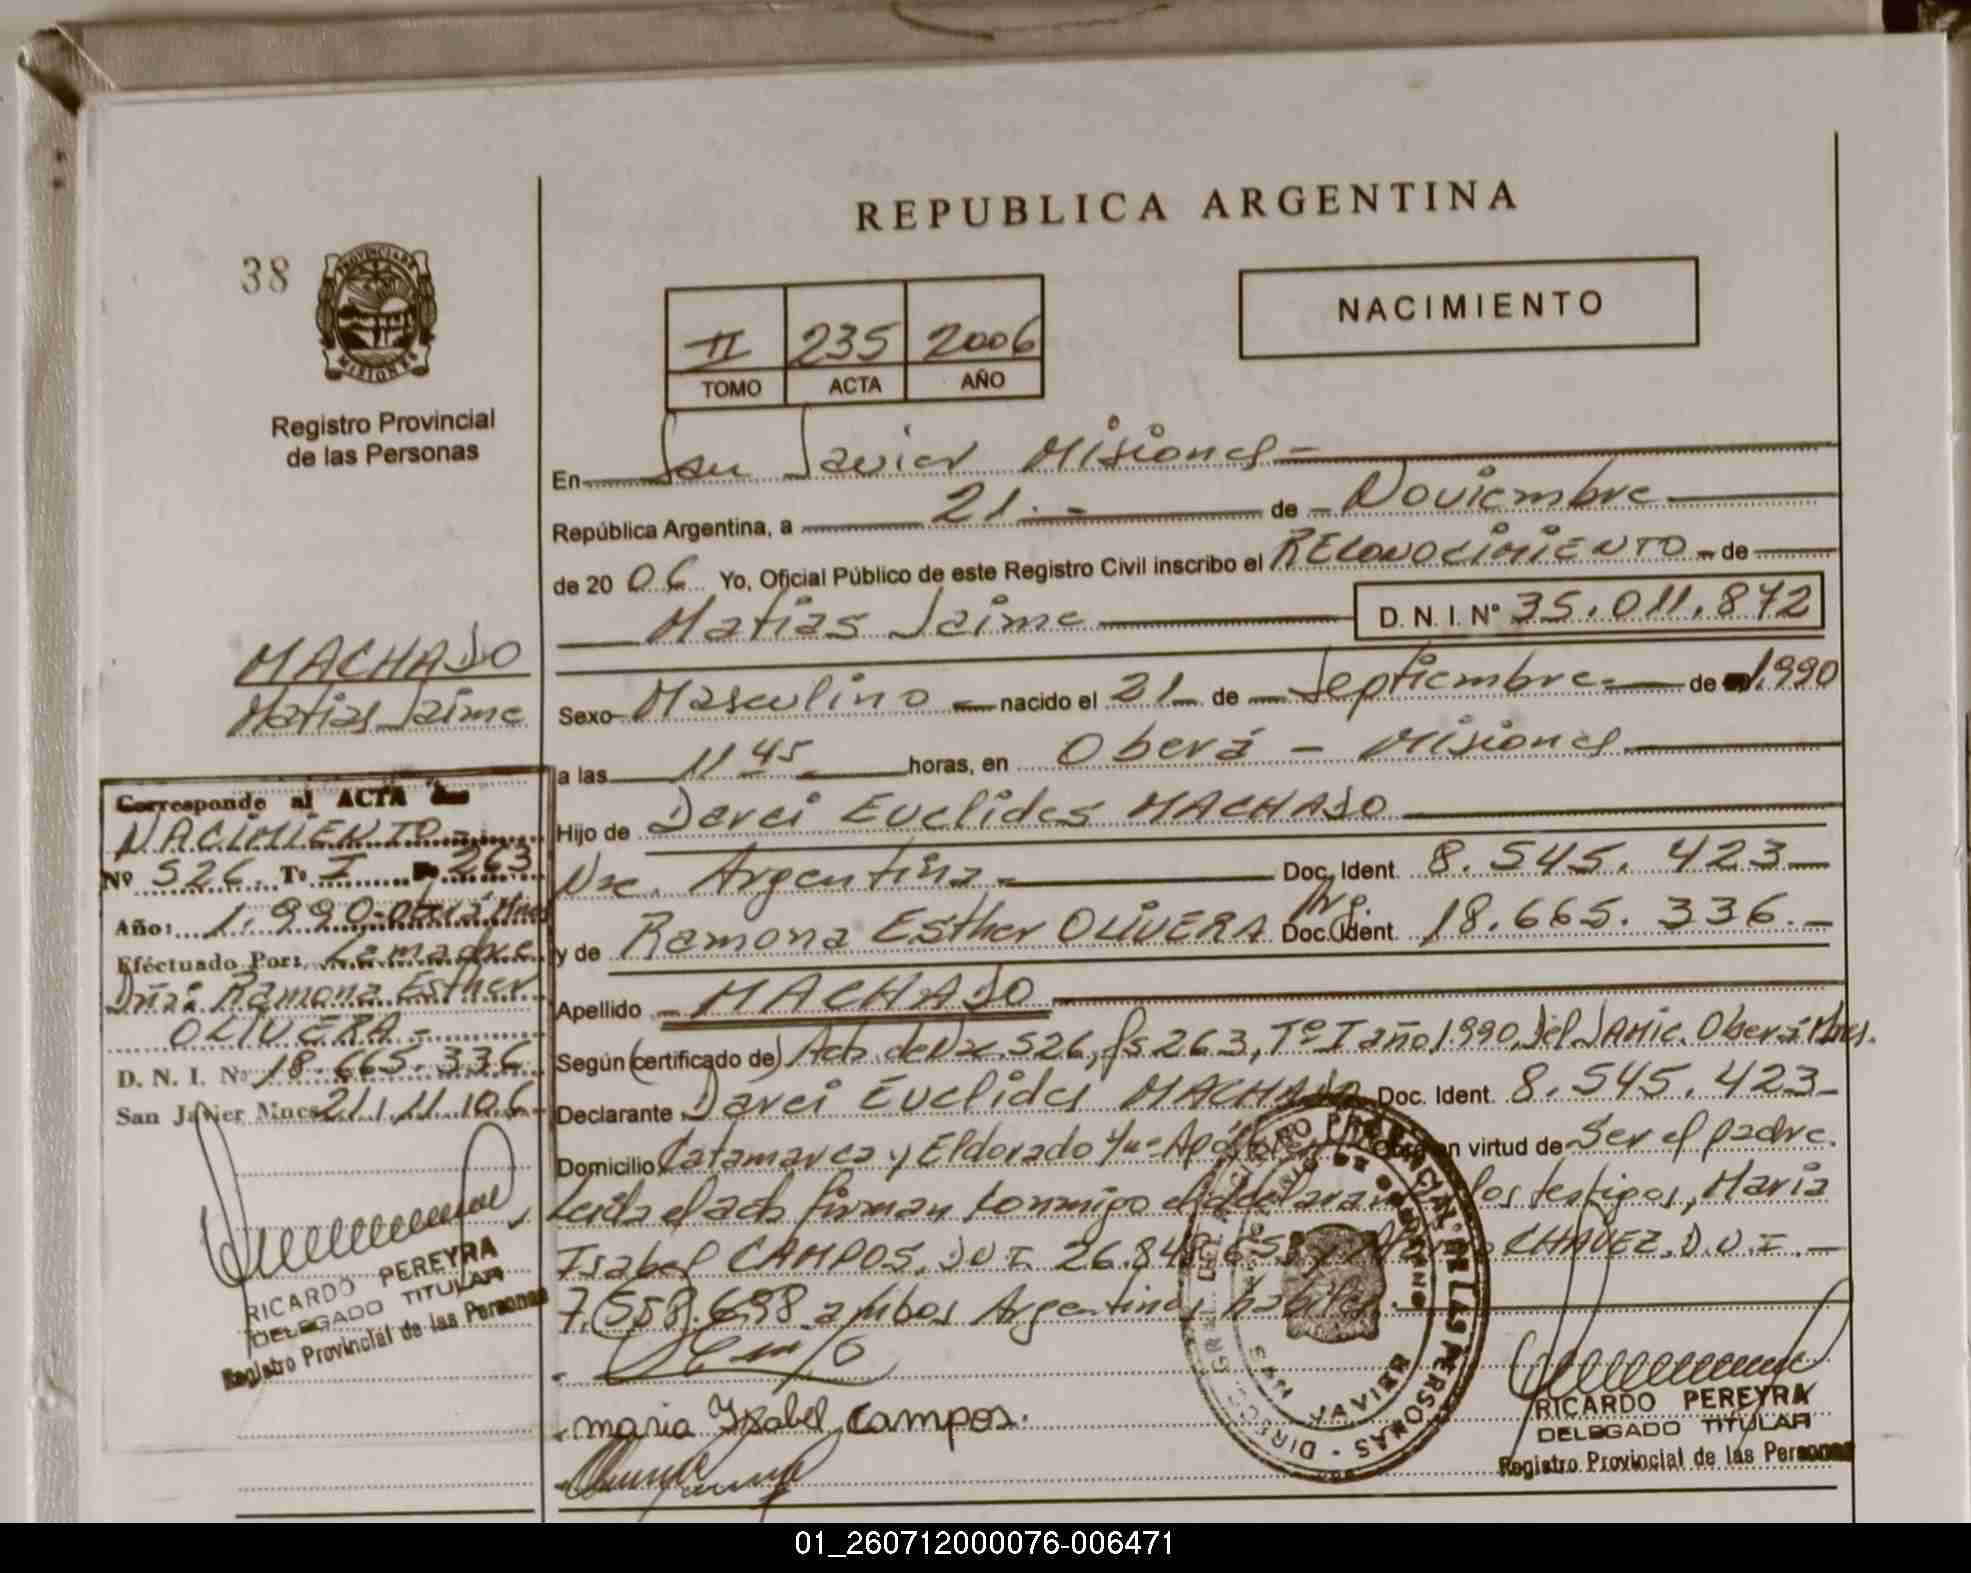 REPUBLICA ARGENTINA
38
PROVINCIA DE
MISIONES
Registro Provincial
de las Personas
II 235 2006
TOMO ACTA AÑO
NACIMIENTO
En San Javier Misiones -
República Argentina, a 21.- de Noviembre
de 20 06 Yo, Oficial Público de este Registro Civil inscribo el RECONOCIMIENTO - de
Matias Jaime D. N. I. Nº 35.011.872
Sexo Masculino nacido el 21 de Septiembre de 1.990
a las 11 45 horas, en Oberá - Misiones
Hijo de Darci Euclides MACHADO
Nac. Argentina.- Doc. Ident. 8.545.423
y de Ramona Esther OLIVERA Arg. Doc. Ident. 18.665.336.-
Apellido - MACHADO
Según (certificado de) Acta de Nac. 526, fs 263, Tº I año 1.990, del Oberá Mnes.
Declarante Darci Euclides MACHADO Doc. Ident. 8.545.423
Domicilio Catamarca y Eldorado en virtud de Ser el padre.
Leida el acta firman conmigo el los testigos, Maria
Isabel CAMPOS, D.N.I. 26.848. CHAVEZ, D.N.I. -
7.558.698 ambos Argentinos habiles.
maria Isabel campos.
RICARDO PEREYRA
DELEGADO TITULAR
Registro Provincial de las Personas
MACHADO
Matias Jaime
Corresponde al ACTA de
NACIMIENTO
Nº 526 Tº I Fº 263
Año: 1.990-Oberá Mnes
Eféctuado Por: La madre
Dña: Ramona Esther
OLIVERA -
D. N. I. Nº 18.665.336
San Javier Mnes 21/11/06
RICARDO PEREYRA
DELEGADO TITULAR
Registro Provincial de las Personas
01_260712000076-006471